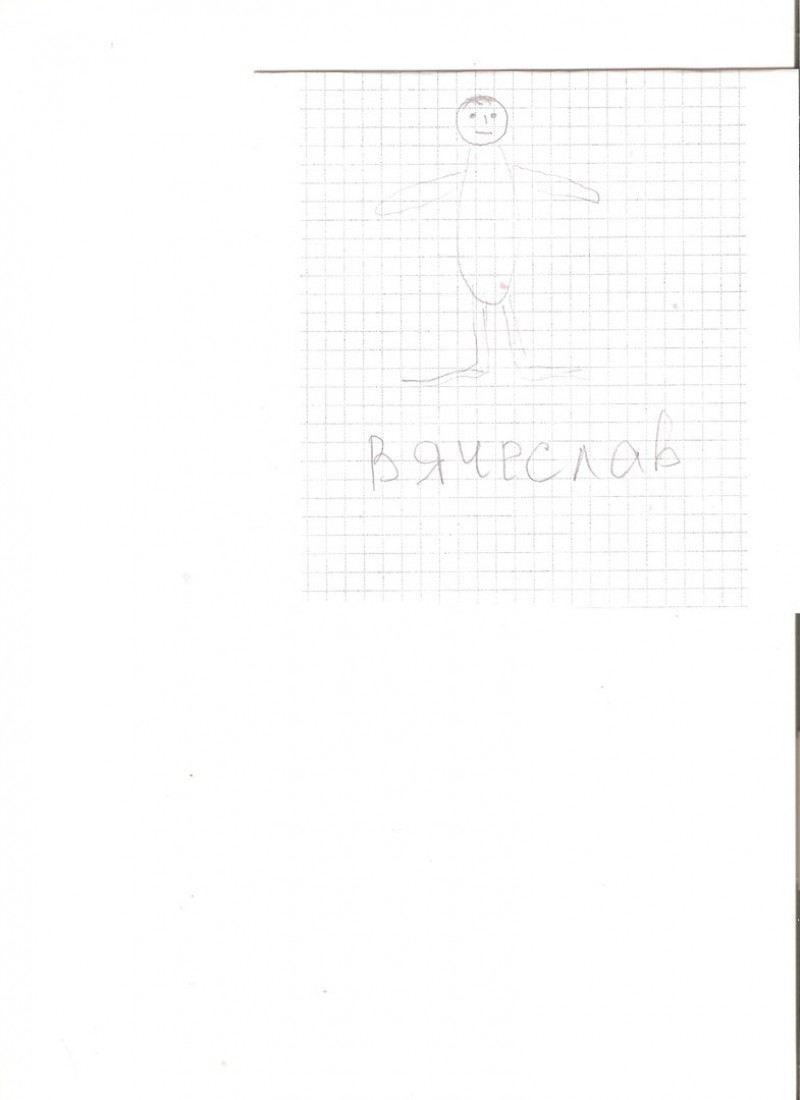 Вячеслав